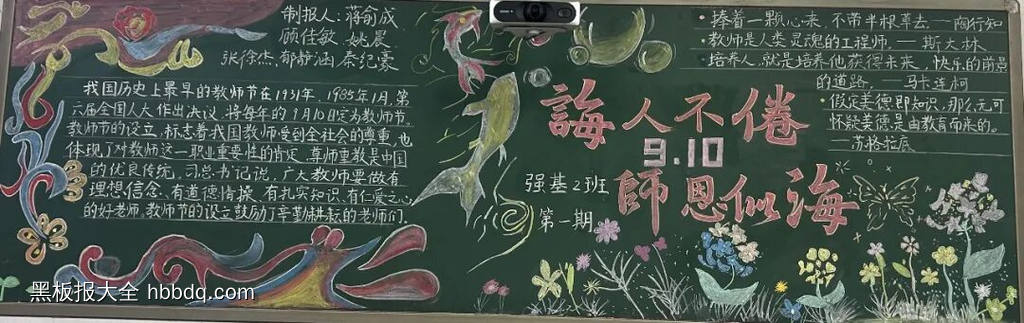 制报人：蒋俞成
顾佳敏 姚晨
张徐杰 郁静涵 秦纪豪
我国历史上最早的教师节在1931年，1985年1月，第
六届全国人大作出决议，将每年的9月10定为教师节。
教师节的设立，标志着我国教师受到全社会的尊重，也
体现了对教师这一职业重要性的肯定。尊师重教是中国
的优良传统，习总书记说，广大教师要做有
理想信念、有道德情操、有扎实知识、有仁爱之心
的好老师，教师节的设立鼓励了辛勤耕耘的老师们。
誨人不倦
9.10
師恩似海
强基2班
第一期
·捧着一颗心来，不带半根草去——陶行知
·教师是人类灵魂的工程师。——斯大林
培养人，就是培养他获得未来，快乐的前景
的道路。——马卡连柯
·假定美德即知识，那么无可
怀疑美德是由教育而来的。
——苏格拉底
黑板报大全 hbbdq.com